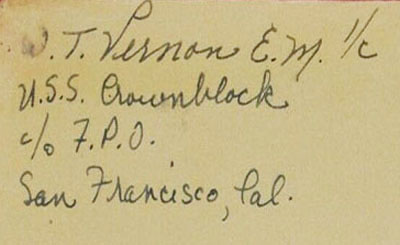 W. T. Vernon E.M. 1/c
U.S.S. Crownblock
c/o F.P.O.
San Francisco, Cal.